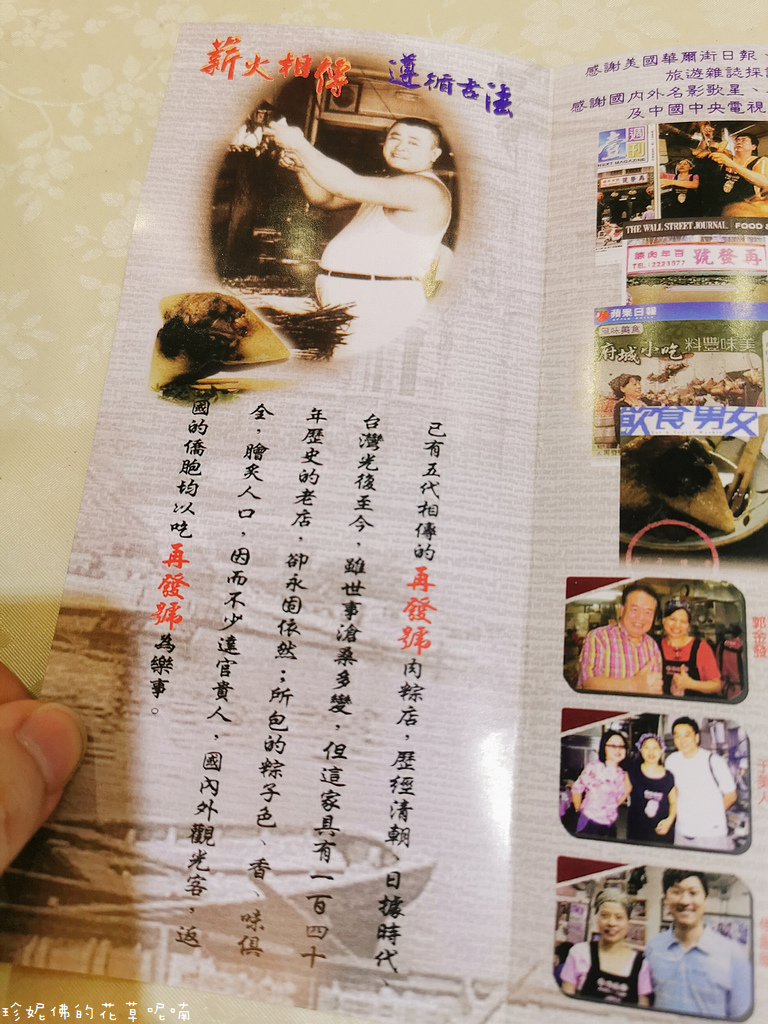 薪火相傳 遵循古法
已有五代相傳的再發號肉粽店，歷經清朝、日據時代、
台灣光後至今，雖世事滄桑多變，但這家具有一百四十
年歷史的老店，卻永固依然；所包的粽子色、香、味俱
全，膾炙人口，因而不少達官貴人，國內外觀光客，返
國的僑胞均以吃再發號為樂事。
感謝美國華爾街日報、
旅遊雜誌採
感謝國內外名影歌星、
及中國中央電視
壹週刊
NEXT MAGAZINE
THE WALL STREET JOURNAL FOOD &
號發再
粽肉年百
TEL:2223577
蘋果日報
府城小吃
料豐味美
飲食男女
郭金發
于美人
珍妮佛的花草呢喃